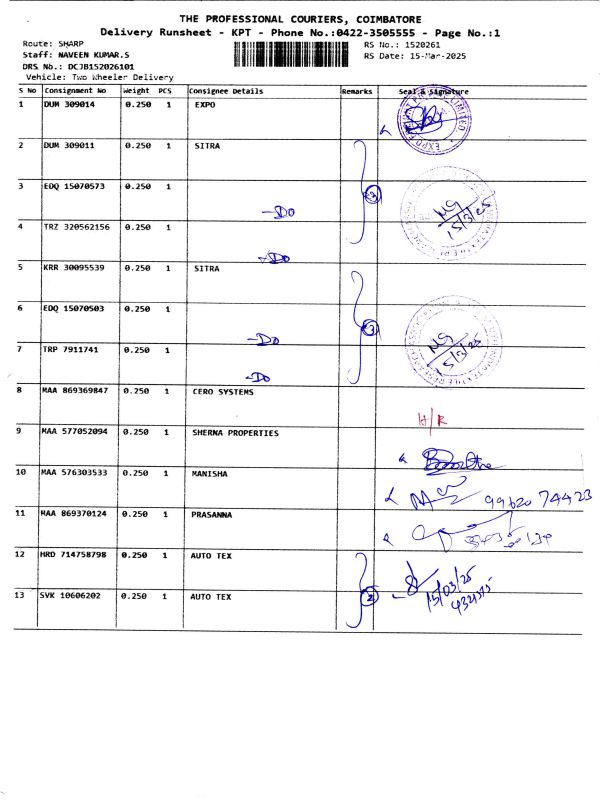 THE PROFESSIONAL COURIERS, COIMBATORE
Delivery Runsheet - KPT - Phone No.:0422-3505555 - Page No.:1
Route: SHARP RS No.: 1520261
Staff: NAVEEN KUMAR.S RS Date: 15-Mar-2025
DRS No.: DCJB152026101
Vehicle: Two Wheeler Delivery
S No Consignment No Weight PCS Consignee Details Remarks Seal & Signature
1 DUM 309014 0.250 1 EXPO
2 DUM 309011 0.250 1 SITRA
3 EDQ 15070573 0.250 1 -Do 3 15/3/25
4 TRZ 320562156 0.250 1 -Do
5 KRR 30095539 0.250 1 SITRA
6 EDQ 15070503 0.250 1 -Do 3 15/3/25
7 TRP 7911741 0.250 1 -Do
8 MAA 869369847 0.250 1 CERO SYSTEMS H/R
9 MAA 577052094 0.250 1 SHERNA PROPERTIES
10 MAA 576303533 0.250 1 MANISHA 99620 74423
11 MAA 869370124 0.250 1 PRASANNA
12 HRD 714758798 0.250 1 AUTO TEX 15/03/25
13 SVK 10606202 0.250 1 AUTO TEX 2